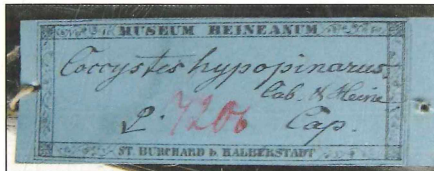 MUSEUM HEINEANUM
Coccystes hypopinarus.
Cab. & Heine
♀. 7206 Cap.
ST. BURCHARD b. HALBERSTADT